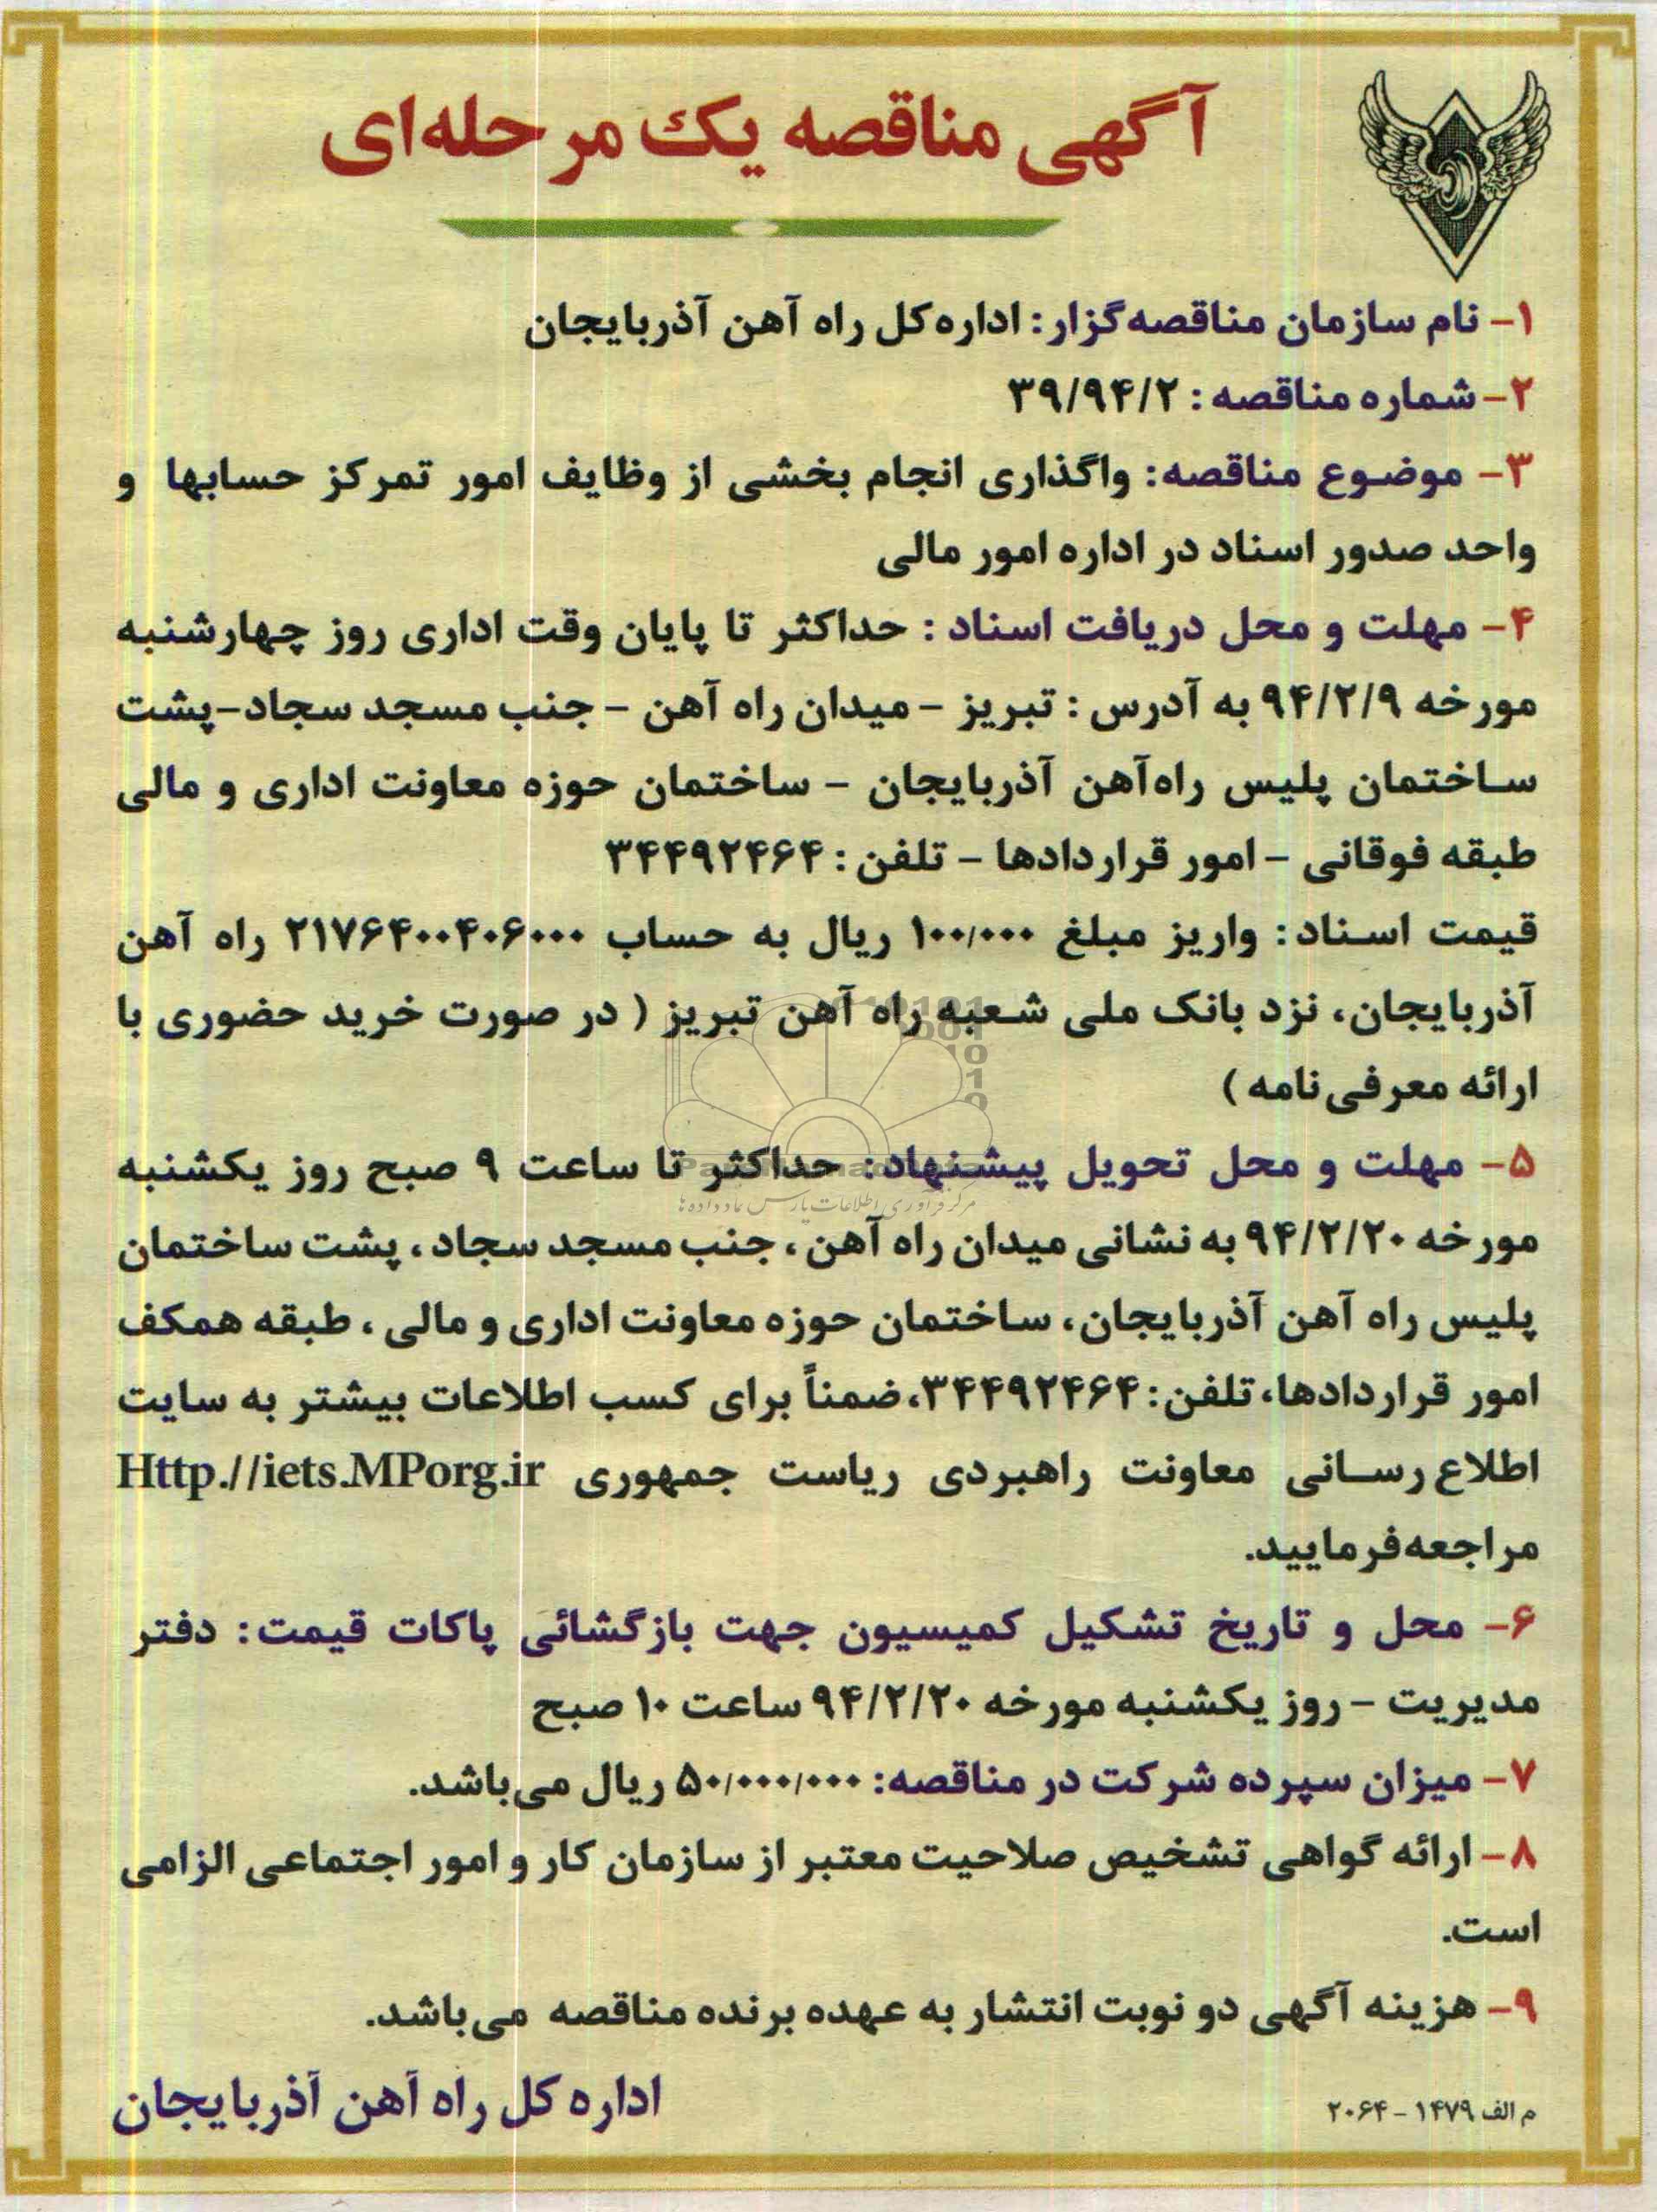 آگهی مناقصه یک مرحله‌ای
۱- نام سازمان مناقصه‌گزار: اداره‌کل راه آهن آذربایجان
۲- شماره مناقصه : ۳۹/۹۴/۲
۳- موضوع مناقصه: واگذاری انجام بخشی از وظایف امور تمرکز حسابها و
واحد صدور اسناد در اداره امور مالی
۴- مهلت و محل دریافت اسناد : حداکثر تا پایان وقت اداری روز چهارشنبه
مورخه ۹۴/۲/۹ به آدرس : تبریز - میدان راه آهن - جنب مسجد سجاد-پشت
ساختمان پلیس راه‌آهن آذربایجان - ساختمان حوزه معاونت اداری و مالی
طبقه فوقانی - امور قراردادها - تلفن : ۳۴۴۹۲۴۶۴
قیمت اسناد: واریز مبلغ ۱۰۰/۰۰۰ ریال به حساب ۲۱۷۶۴۰۰۴۰۶۰۰۰ راه آهن
آذربایجان، نزد بانک ملی شعبه راه آهن تبریز ( در صورت خرید حضوری با
ارائه معرفی‌نامه )
۵- مهلت و محل تحویل پیشنهاد: حداکثر تا ساعت ۹ صبح روز یکشنبه
مرکز فرآوری اطلاعات پارس ماد داده ها
مورخه ۹۴/۲/۲۰ به نشانی میدان راه آهن ، جنب مسجد سجاد ، پشت ساختمان
پلیس راه آهن آذربایجان، ساختمان حوزه معاونت اداری و مالی ، طبقه همکف
امور قراردادها، تلفن: ۳۴۴۹۲۴۶۴، ضمناً برای کسب اطلاعات بیشتر به سایت
اطلاع‌رسانی معاونت راهبردی ریاست جمهوری Http.//iets.MPorg.ir
مراجعه‌فرمایید.
۶- محل و تاریخ تشکیل کمیسیون جهت بازگشائی پاکات قیمت: دفتر
مدیریت - روز یکشنبه مورخه ۹۴/۲/۲۰ ساعت ۱۰ صبح
۷- میزان سپرده شرکت در مناقصه: ۵۰/۰۰۰/۰۰۰ ریال می‌باشد.
۸- ارائه گواهی تشخیص صلاحیت معتبر از سازمان کار و امور اجتماعی الزامی
است.
۹- هزینه آگهی دو نوبت انتشار به عهده برنده مناقصه می‌باشد.
اداره کل راه آهن آذربایجان
م الف ۱۴۷۹ - ۲۰۶۴